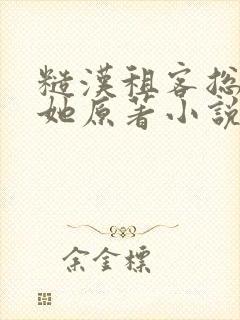 糙漢租客拯
她原著小說
余金標